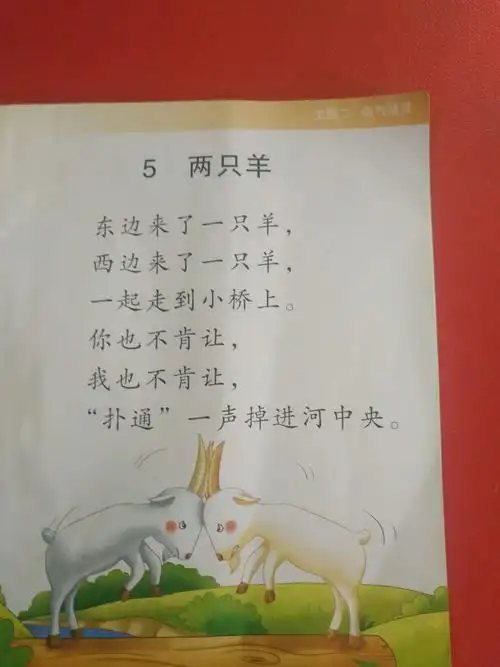 5 两只羊
东边来了一只羊，
西边来了一只羊，
一起走到小桥上。
你也不肯让，
我也不肯让，
“扑通”一声掉进河中央。